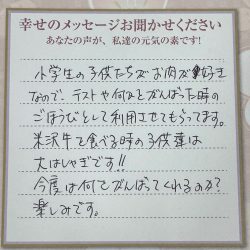 幸せのメッセージお聞かせください
あなたの声が、私達の元気の素です!
小学生の子供たちがお肉が好き
なので、テストや何かとがんばった時の
ごほうびとして利用させてもらってます。
米沢牛を食べる時の子供達は
大はしゃぎです!!
今度は何でがんばってくれるのか?
楽しみです。